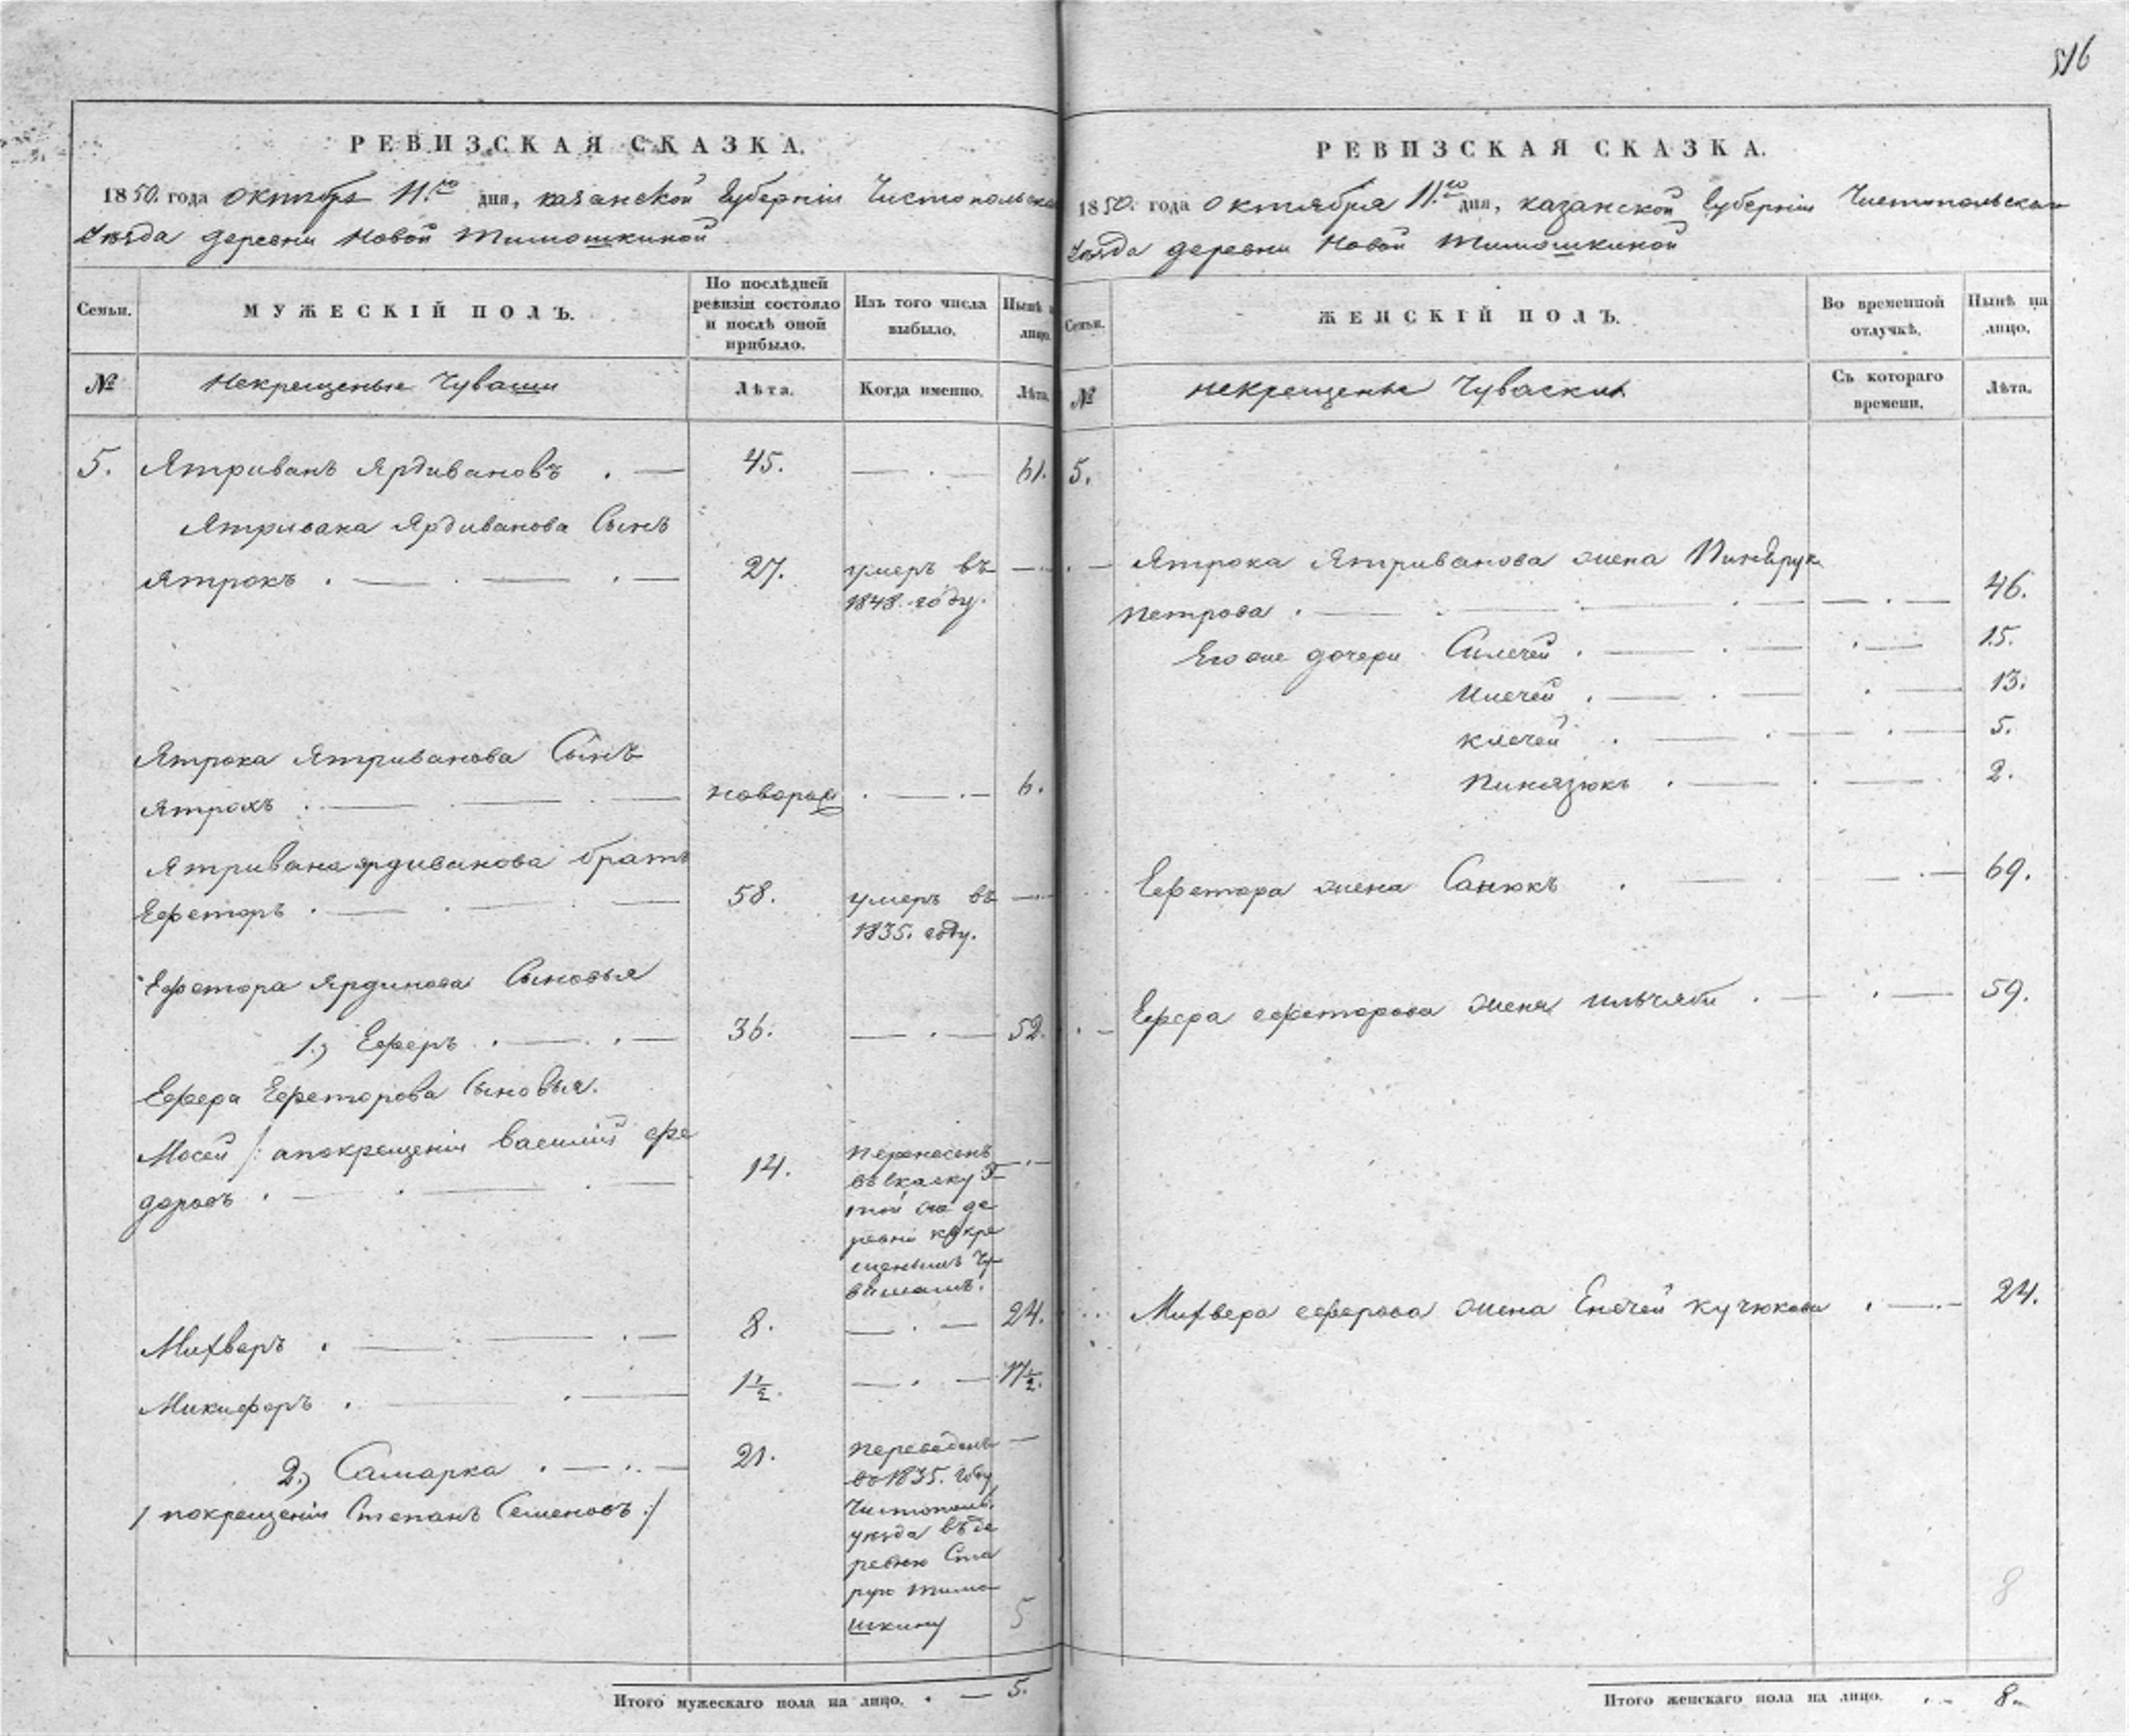 516
РЕВИЗСКАЯ СКАЗКА.
1850. года октября 11.го дня, казанской Губернiи Чистопольска
Уѣзда деревни Новой Тимошкиной
Семьи.
МУЖЕСКІЙ ПОЛЪ.
По послѣдней
ревизіи состояло
и послѣ оной
прибыло.
Изъ того числа
выбыло.
Нынѣ
лицо.
№
Некрещеные Чуваши
Лѣта.
Когда именно.
Лѣта.
5. Ятриванъ Ярдивановъ . — 45. — . — 61.
Ятривана Ярдиванова Сынъ
Ятрокъ . — . — . — 27. умеръ въ —
1848. году.
Ятрока Ятриванова Сынъ
Ятрохъ . — . — — новорож . — . — 6.
Ятривана ярдиванова братъ
Ефеторъ . — . — — 58. умеръ въ —
1835. году.
Ефетора Ярдинова Сыновья
1., Еферъ . — . . — 36. — . — 52.
Ефера Ефеторова Сыновья.
Мосей /: апокрещенiи василiй фе
доровъ . — . — . — 14. Перенесенъ — . —
въ скаску Э
той же де
ревни къкре
щенымъ Чу
вашамъ.
Митверъ . — — . — 8. — . — 24.
Микифоръ . — . — 1 1/2. — . — 17 1/2.
2., Самарка . — . . — 21. переведенъ —
въ 1835. году
Чистополь.
уѣзда въ де
ревню Ста
рую тимо
шкину
5
Итого мужескаго пола на лицо. . — 5.
РЕВИЗСКАЯ СКАЗКА.
1850. года октября 11.го дня, казанской Губернiи Чистопольскаго
Уѣзда деревни Новой Тимошкиной
Семьи.
ЖЕНСКІЙ ПОЛЪ.
Во временной
отлучкѣ.
Нынѣ на
лицо.
№
некрещеные Чуваски
Съ котораго
времени.
Лѣта.
5.
Ятрока Ятриванова жена
Петрова . — . — — . — . — 46.
Его же дочери Силечей . — . — . — 15.
Илечей . — . — . — 13.
Клечей . — . — . — 5.
Пинязюкъ . — . — 2.
Ефетора жена Санюкъ . — . — . — 69.
Ефера ефеторова жена . — . — 59.
Митвера еферова жена Енечей кучюкова . — . — 24.
/ покрещенiи Степанъ Семеновъ :/
8
Итого женскаго пола на лицо. . — 8.